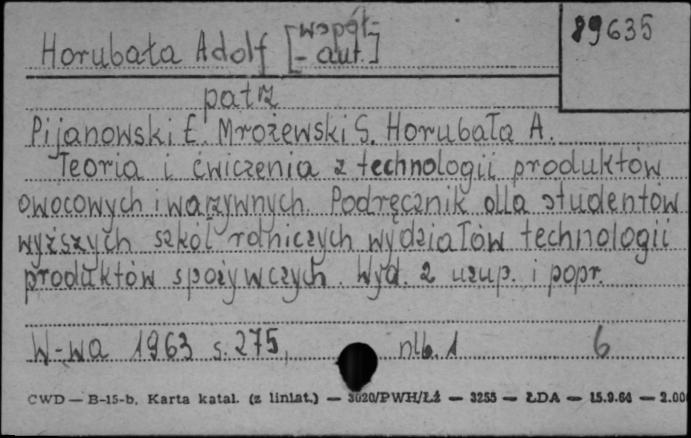 89635
Horubała Adolf [współ-
- aut.]
patrz
Pijanowski E. Mrożewski S. Horubała A.
Teoria i ćwiczenia z technologii produktów
owocowych i warzywnych. Podręcznik dla studentów
wyższych szkół rolniczych wydziałów technologii
produktów spożywczych. Wyd. 2 uzup. i popr.
W-wa 1963 s. 275, nlb. 1 6
CWD — B-15-b. Karta katal. (z liniat.) — 3020/PWH/Łź — 3255 — ŁDA — 15.9.64 — 2.00